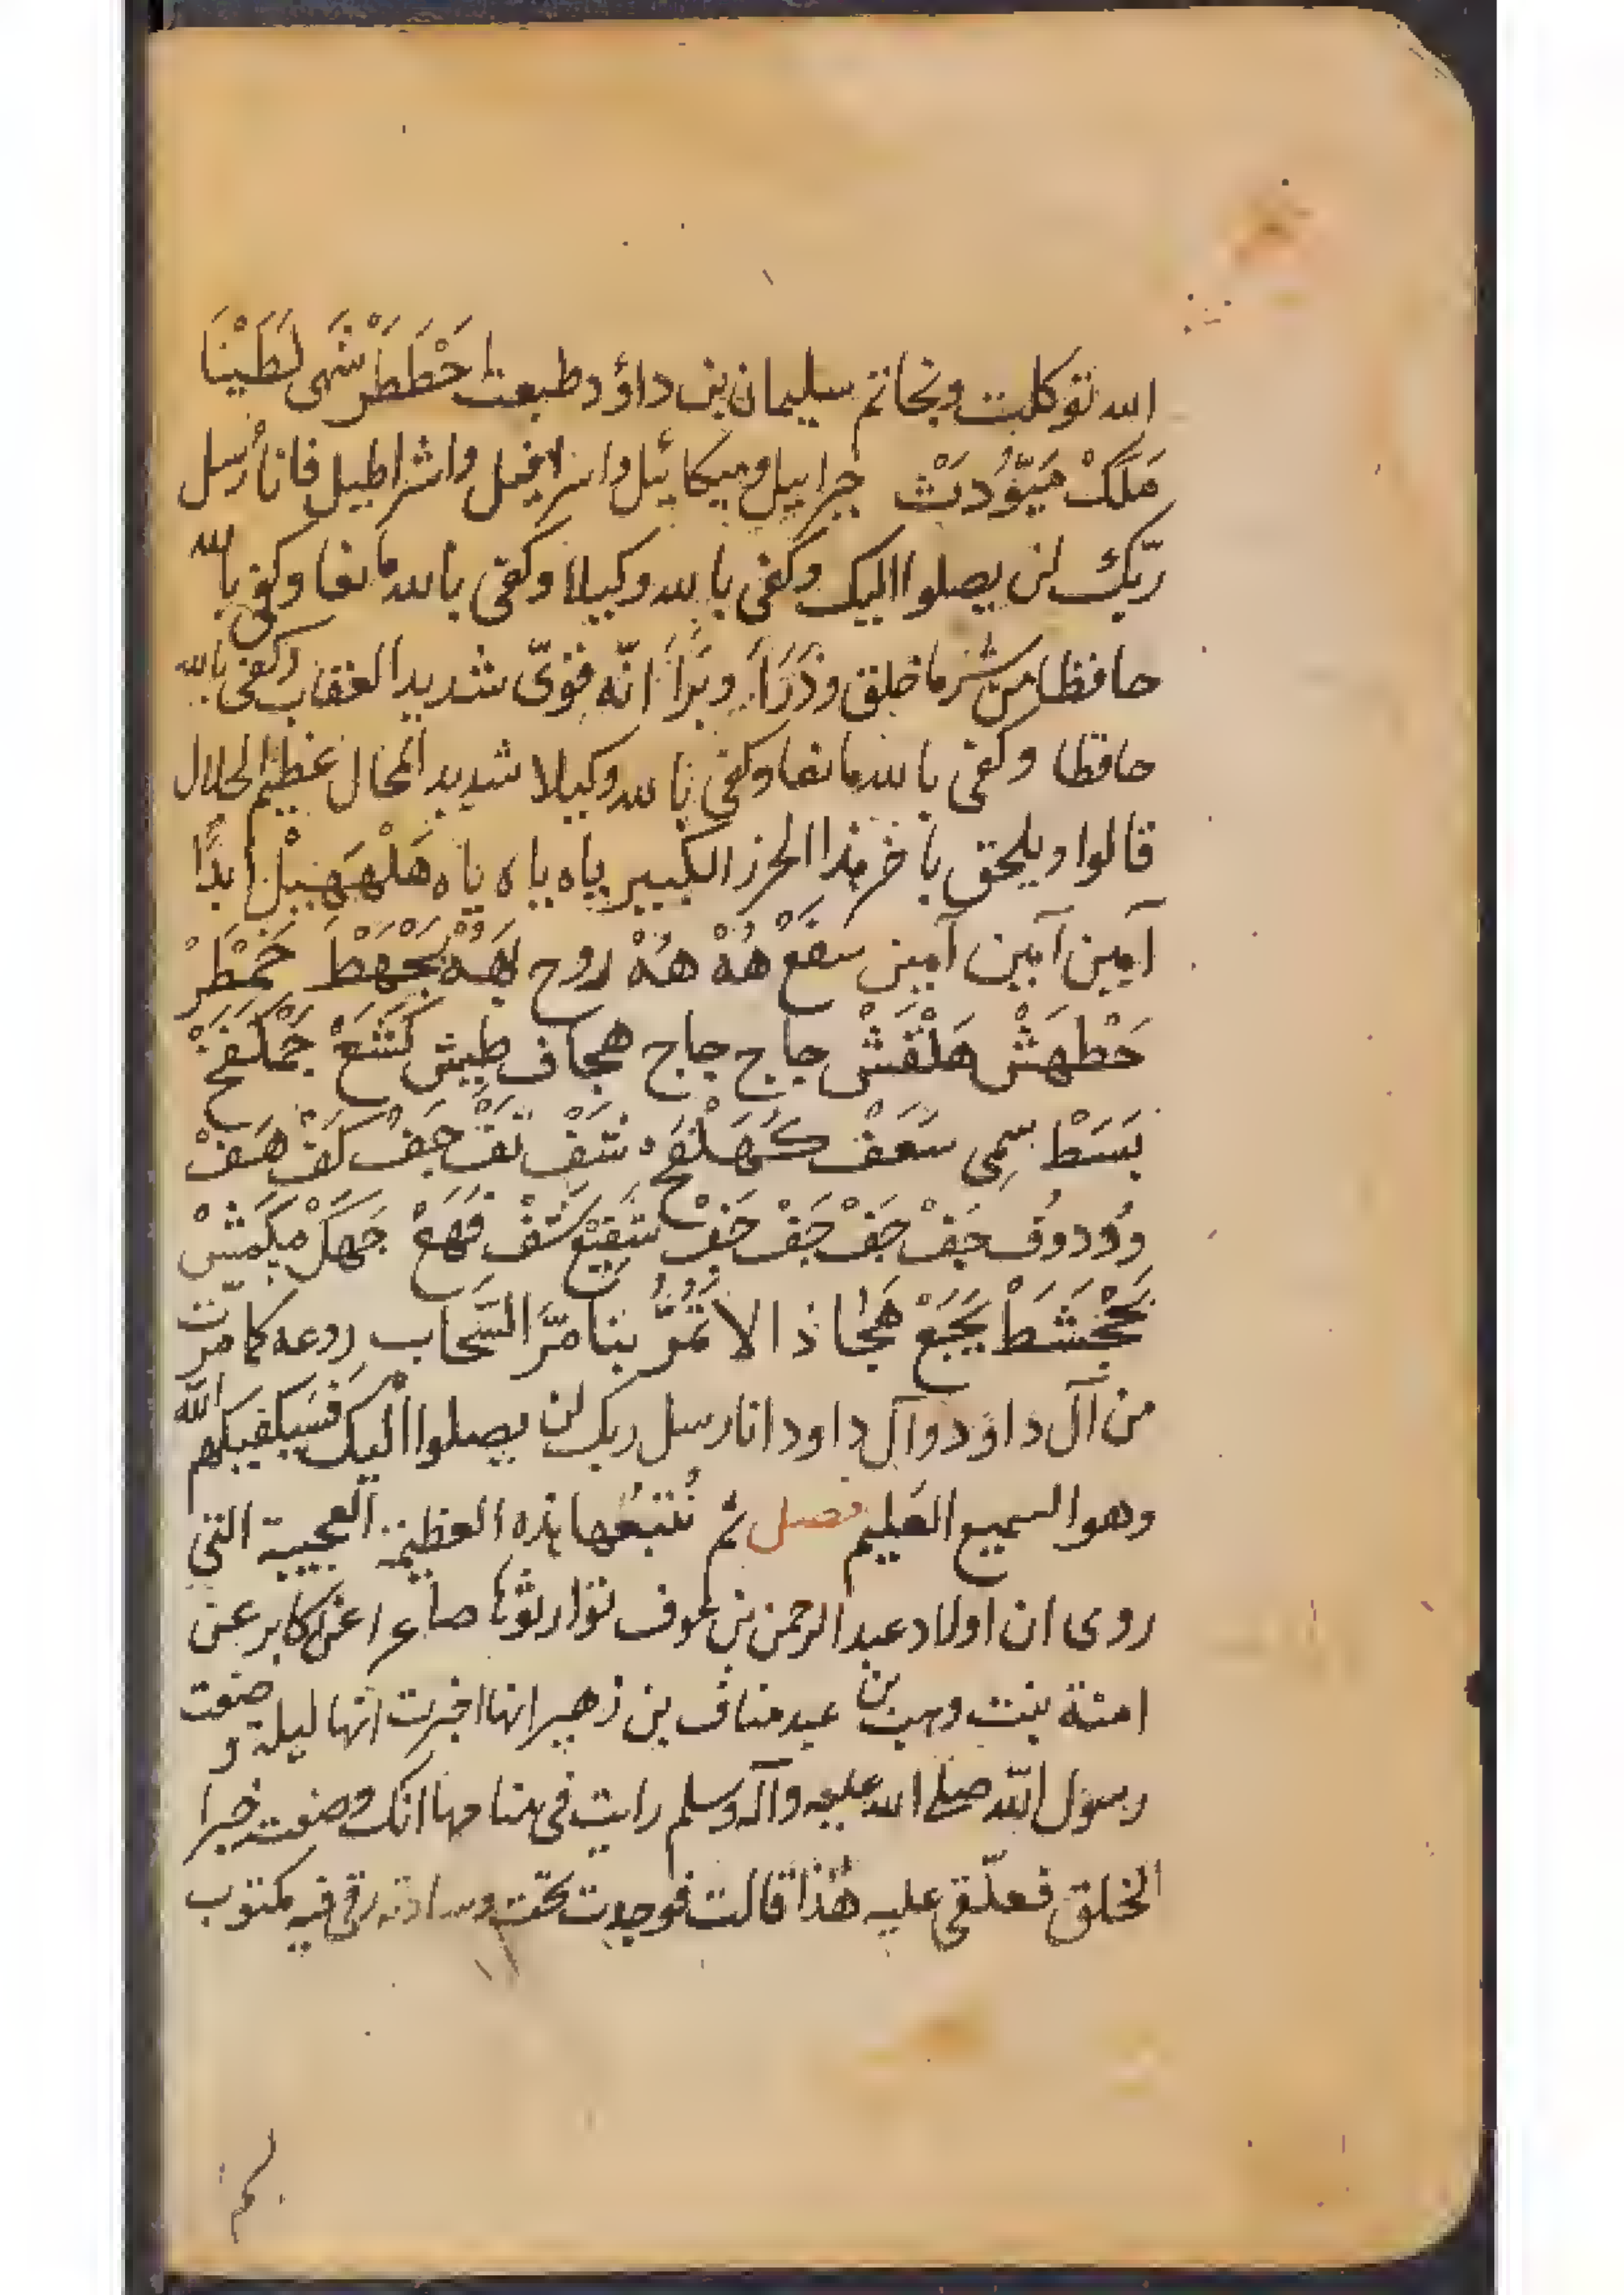 الله توكلت وبخاتم سليمان بن داؤد طبعت حَطْطَطَرْ شَهى لَطَيْنَا
مَلَكْ مَيَّؤُدَتْ جبراييل وميكائيل واسرافيل واشراطيل فانا رُسل
ربّك لن يصلوا اليك وكفى بالله وكيلا وكفى بالله مانعا وكفى بالله
حافظا من شر ما خلق وذَرَأ وبَرَأ انّه قوىّ شديد العقاب وكفى بالله
حافظا وكفى بالله مانعا وكفى بالله وكيلا شديد المحال عظيم الجلال
قالوا ويلحق باخر هذا الحرز الكبير ياه ياه ياه هَلْهَهَبيْل ابدًا
آمين آمين آمين سقعْ هُهْ هُهْ روح
حَطْهَشْ هَلْقَشْ جاج جاج هجاف طيش كَشَعْ
بَسَطْ سِمِى سَعَفْ كَهَلْفَح نتَفْ تَفْ جَفْ كَفْ هَفْ
ودودوف جَفْ جَفْ جَفْ جَفْ
هَجْا ذا الا تَمُرُّ بنا مرَّ السَّحَاب روعه كما مرّت
من آل داؤد وآل داود انا رسل ربك لن يصلوا اليك فسَيكفيكهم الله
وهو السميع العليم فصل ثم نُتبعُها بهذه العظيمة العجيبة التي
روى ان اولاد عبد الرحمن بن عوف توارثوها صاغرا عن كابر عن
امنة بنت وهب بن عبد مناف بن زهير انها اخبرت انها ليلة وضعت
رسول الله صلى الله عليه وآله وسلم رايت فى منامها انك وضعت خير
الخلق فعلّقى عليه هذا قالت فوجدت تحت وسادته رق فيه مكتوب